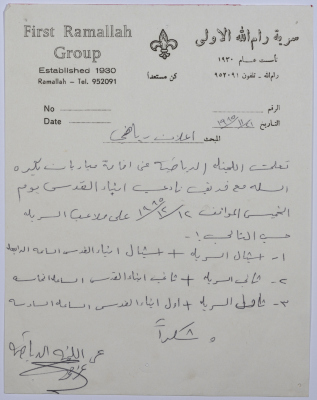 First Ramallah Group
سرية رام الله الاولى
Established 1930
تأست عام ١٩٣٠
Ramallah - Tel. 952091
رام الله - تلفون ٩٥٢٠٩١
كن مستعداً
No
الرقم
Date
التاريخ
المبحث اعلان رياضي
تعلن اللجنة الرياضية عن اقامة مباريات بكرة
السلة مع فريق نادي ابناء القدس يوم
الخميس الموافق ١٢/١٢/١٩٨٥ على ملاعب السرية
حسب التالي :-
١- اشبال السرية + اشبال ابناء القدس الساعة الرابعة
٢- ثاني السرية + ثاني ابناء القدس الساعة الخامسة
٣- اول السرية + اول ابناء القدس الساعة السادسة
شكراً
عن اللجنة الرياضية